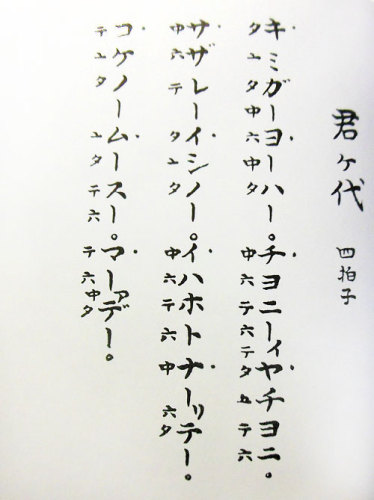 君ヶ代 四拍子
キミガーヨーハー。チヨニーィヤチヨニ。
タユタ中六中タ 中六テ六テタユテ六
サザレーイシノー。イハホトナーリテー。
中六テタユタ 中六テ六中六タ
コケノームースー。マーァデー。
テユタユタテ六 テ六中タ